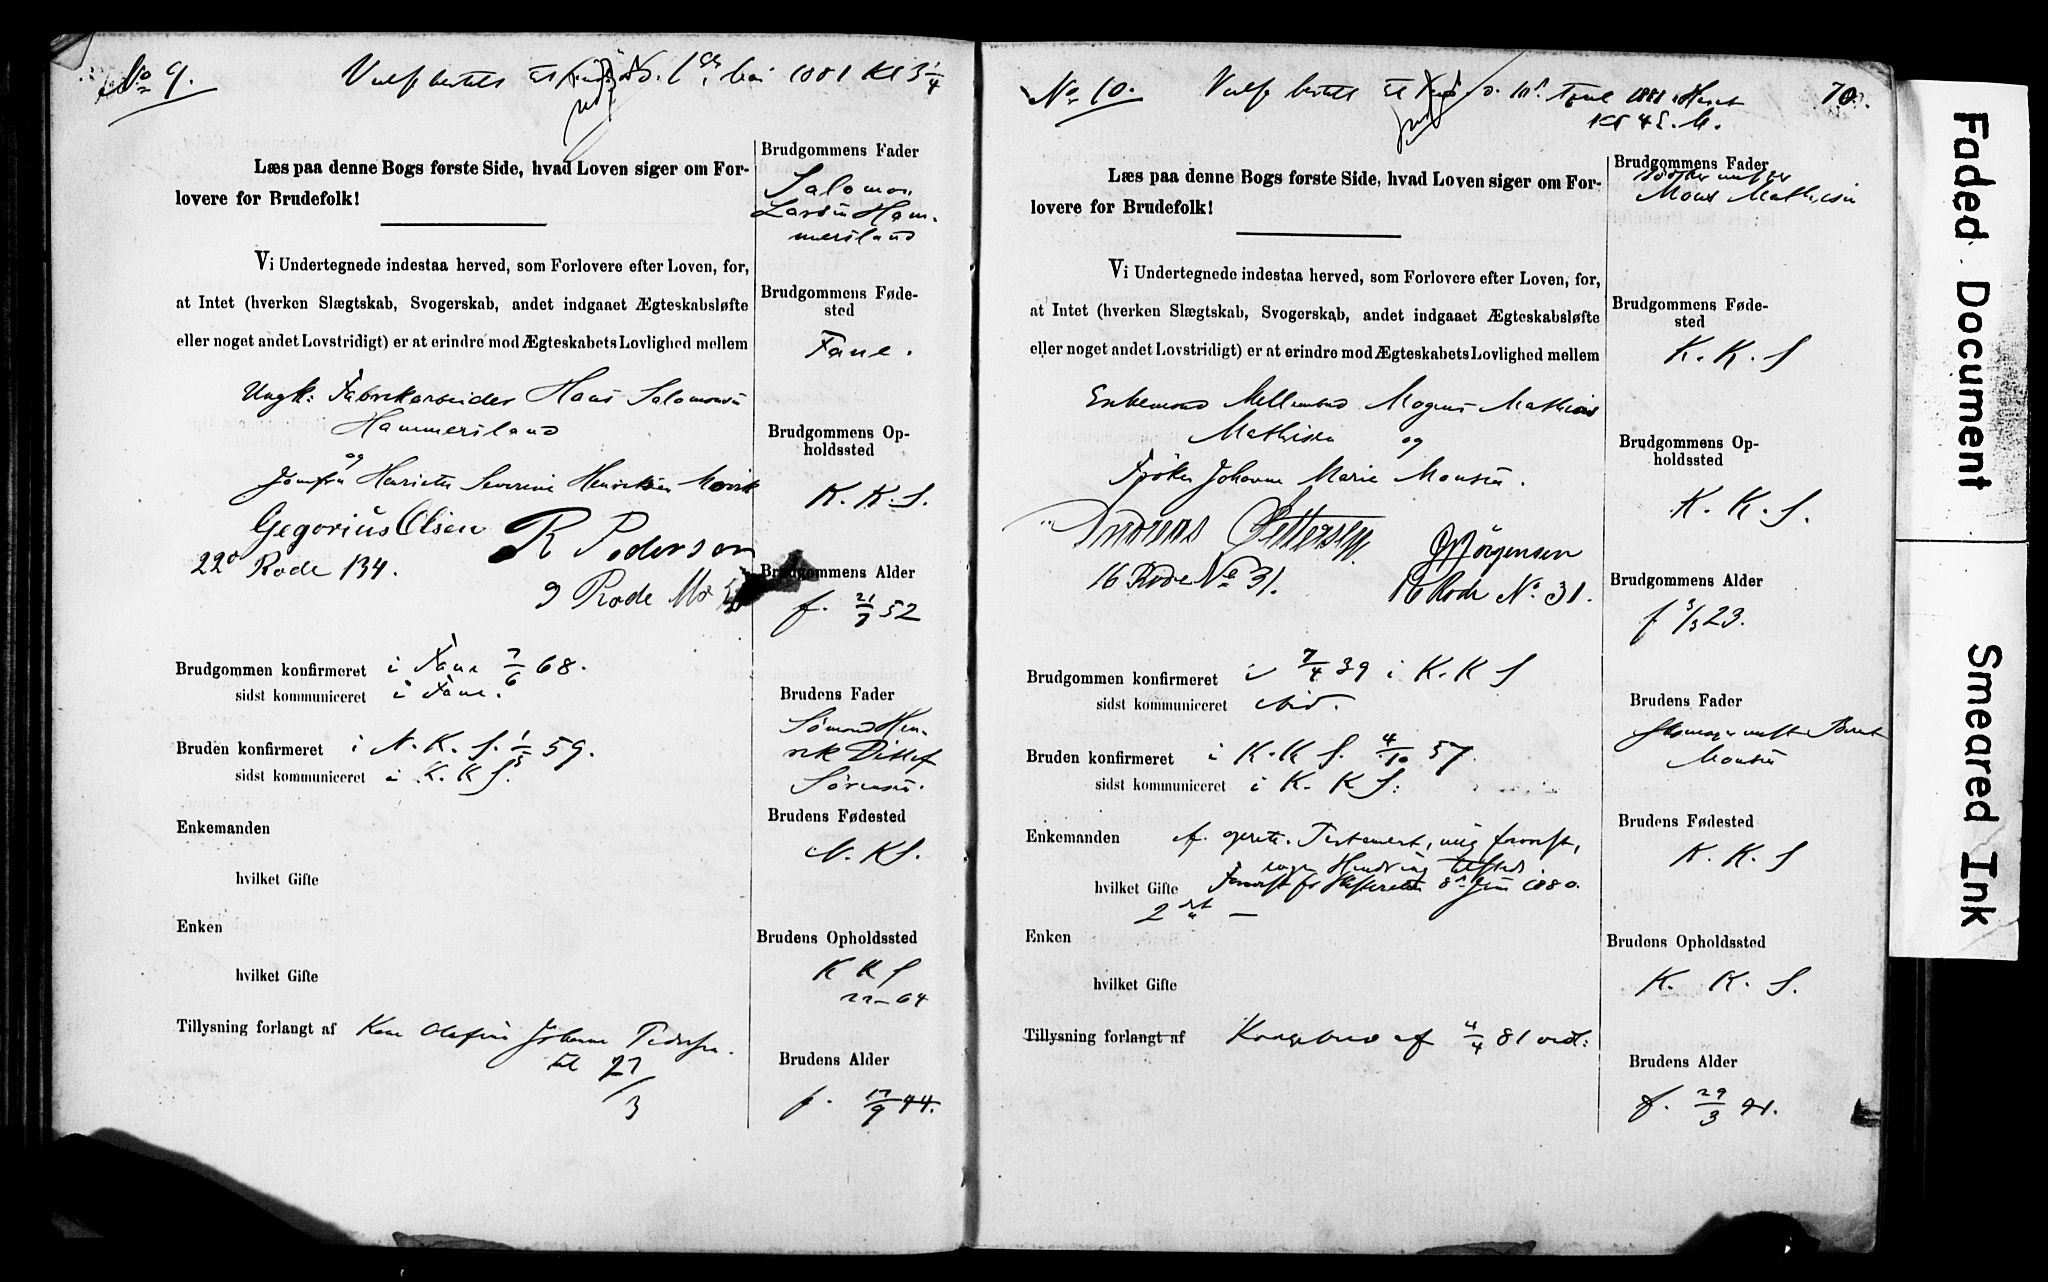 No 9.
1881 Kl 3 1/4
Læs paa denne Bogs første Side, hvad Loven siger om For-
lovere for Brudefolk!
Vi Undertegnede indestaa herved, som Forlovere efter Loven, for,
at Intet (hverken Slægtskab, Svogerskab, andet indgaaet Ægteskabsløfte
eller noget andet Lovstridigt) er at erindre mod Ægteskabets Lovlighed mellem
Ungk: Fabrikarbeider Hans Salomonsen
Hammersland
og
Jomfru Henriette Severine Henriksen
Gegorius Olsen
R Pedersen
22de Rode 134.
9 Rode No
Brudgommen konfirmeret i Fane 7/6 68.
sidst kommuniceret i Fane.
Bruden konfirmeret i N. K. S. 1/5 59.
sidst kommuniceret i K. K S.
Enkemanden
hvilket Gifte
Enken
hvilket Gifte
Tillysning forlangt af Kone Johanne
til 27/3
Brudgommens Fader
Salomon
Larsen Ham-
mersland
Brudgommens Føde-
sted
Fane.
Brudgommens Op-
holdssted
K. K. S.
Brudgommens Alder
f. 21/9 52
Brudens Fader
Sømand Hen-
rik Ditlef
Sørensen.
Brudens Fødested
N. K S.
Brudens Opholdssted
K K S
22-64
Brudens Alder
f. 17/9 44.
No 10.
1881
Kl 4 E. M.
70.
Læs paa denne Bogs første Side, hvad Loven siger om For-
lovere for Brudefolk!
Vi Undertegnede indestaa herved, som Forlovere efter Loven, for,
at Intet (hverken Slægtskab, Svogerskab, andet indgaaet Ægteskabsløfte
eller noget andet Lovstridigt) er at erindre mod Ægteskabets Lovlighed mellem
Enkemand Mogens Mathias
Mathisen og
Frøken Johanne Marie Monsen.
Andreas Pettersen
Jørgensen
16 Rode No 31.
16 Rode No 31.
Brudgommen konfirmeret i 7/4 39 i K. K S
sidst kommuniceret ibid.
Bruden konfirmeret i K. K S. 4/10 57.
sidst kommuniceret i K. K S.
Enkemanden Testament,
hvilket Gifte 1880.
2det
Enken
hvilket Gifte
Tillysning forlangt af Kongebrev af 4/4 81
Brudgommens Fader
Mons Mathisen
Brudgommens Føde-
sted
K. K. S
Brudgommens Op-
holdssted
K. K. S.
Brudgommens Alder
f 3/3 23.
Brudens Fader
Monsen
Brudens Fødested
K. K. S
Brudens Opholdssted
K. K. S.
Brudens Alder
f. 29/3 41.
Faded Document
Smeared Ink